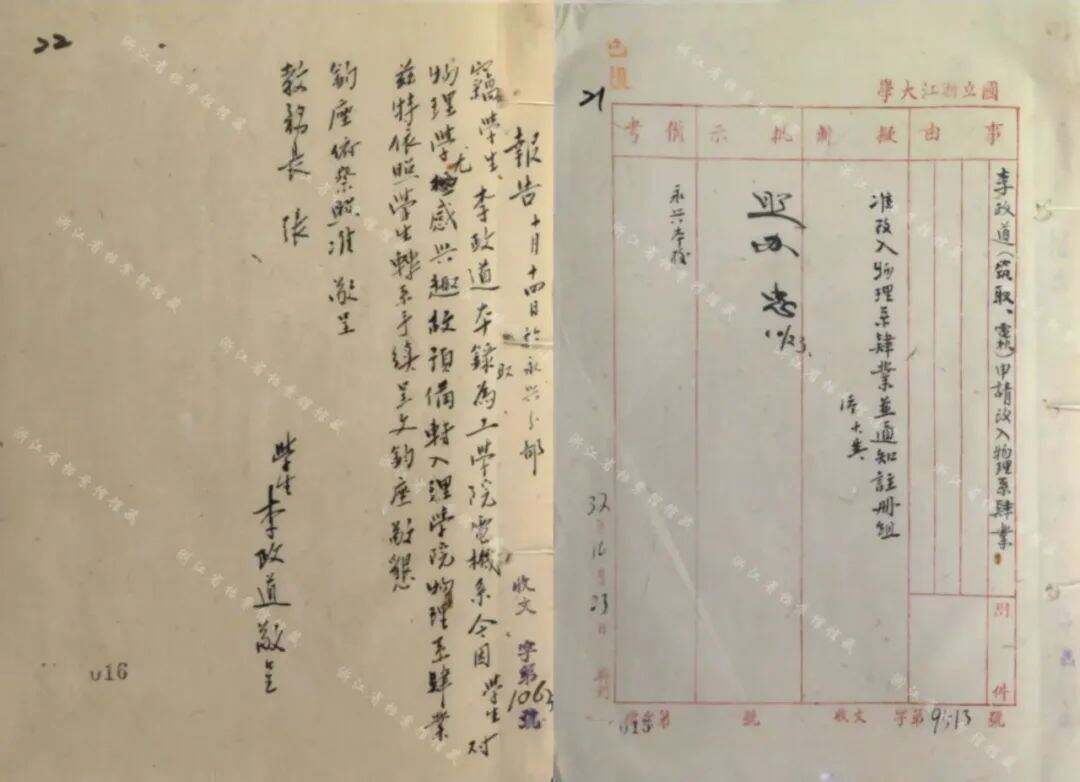 22
報告 十月十四日於永兴分部
竊學生李政道本錄取為工學院電機系今因學生对
物理學尤感兴趣故預備轉入理學院物理系肄業
兹特依照學生轉系手續呈文鈞座敬懇
鈞座俯察照准 敬呈
教務長 張
學生 李政道敬呈
收文 字第1063號
016
21
國立浙江大學
事由
擬辦
批示
備考
李政道(電機)申請改入物理系肄業
附件
准改入物理系肄業並通知註冊組
照办
10/23
永兴本校
32年10月23日
收文 字第9513號
浙江省档案馆馆藏